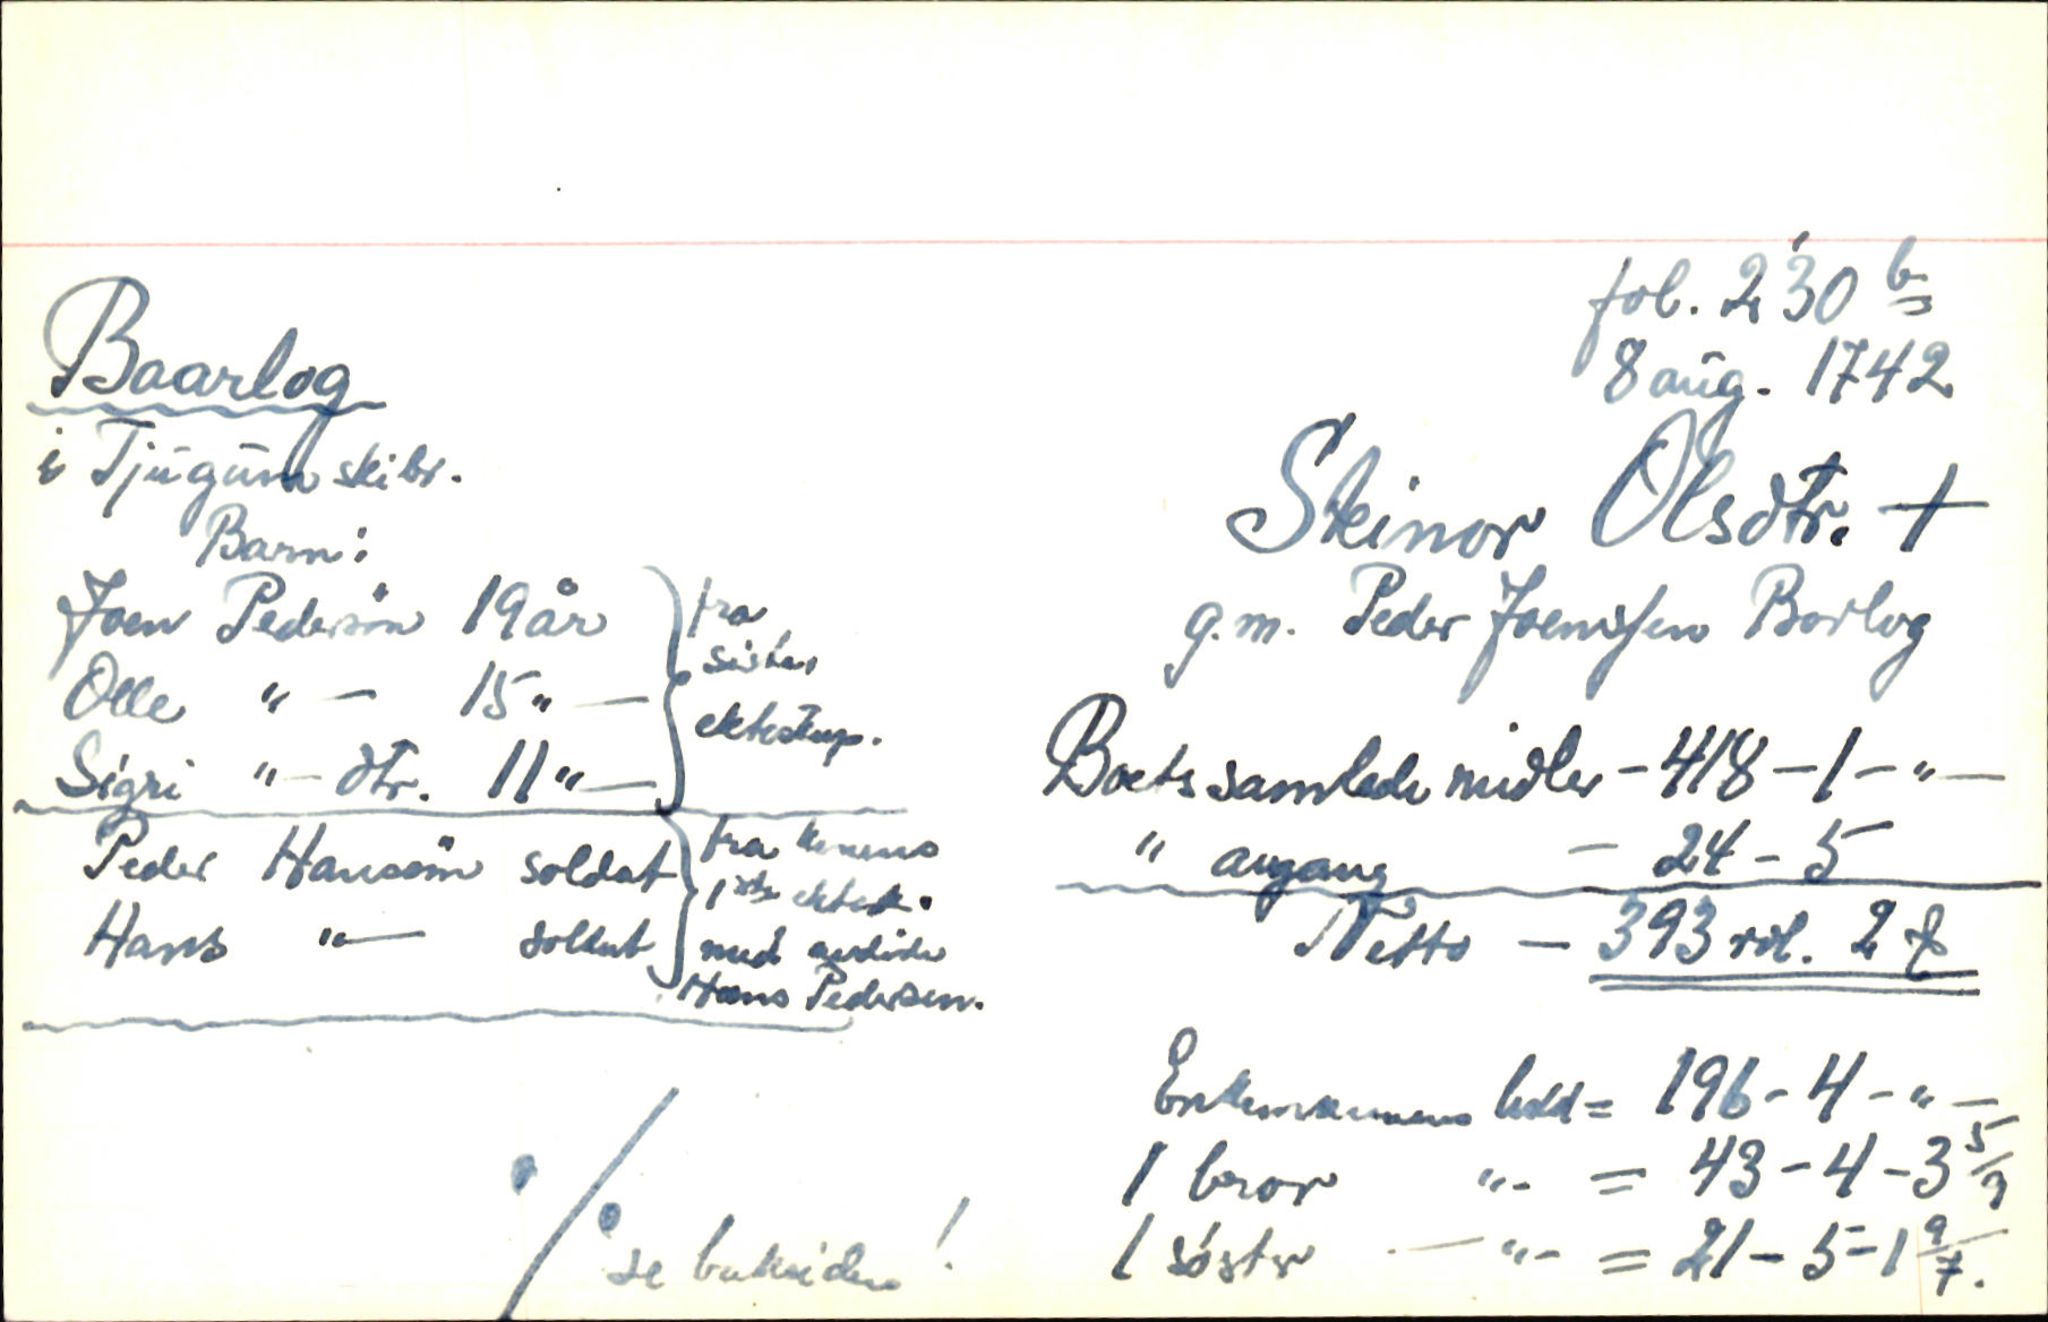 fol. 230 b
8 aug. 1742
Baarlog
i Tjugum skibr.
Steinor Olsdtr. +
g.m. Peder Joenssen Borlog
Barn:
Joen Pedersön 19 år
Olle " — 15 " —
Sigri " — dtr. 11 " —
fra
siste
ekteskap.
Peder Hansön soldat
Hans " — soldat
fra konens
1ste ektesk.
med avdöde
Hans Pedersen.
Boets samlede midler - 418 - 1 - " —
" avgang - 24 - 5
Netto — 393 rdl. 2 ƒ
Enkemannens lodd = 196 - 4 - " —
1 bror " - = 43 - 4 - 3 5/7
1 söster — " - = 21 - 5 - 1 9/7.
·/· se baksiden!